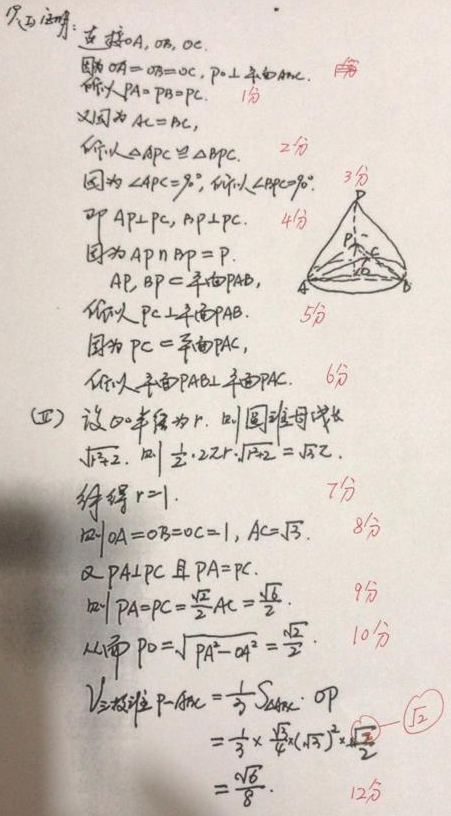 (I) 证明:
连接OA, OB, OC.
因为 OA=OB=OC, PO⊥平面ABC.
所以 PA=PB=PC. 1分
又因为 AC=BC,
所以△APC≌△BPC. 2分
因为 ∠APC=90°, 所以∠BPC=90°. 3分
即 AP⊥PC, BP⊥PC. 4分
因为 AP∩BP=P.
AP, BP⊂平面PAB,
所以 PC⊥平面PAB. 5分
因为 PC⊂平面PAC,
所以 平面PAB⊥平面PAC. 6分
D
P
C
A
O
B
(II) 设⊙O半径为r. 则圆锥母线长
√r²+2. 则 1/2·2πr·√r²+2=√3π.
解得 r=1. 7分
则 OA=OB=OC=1, AC=√3. 8分
又 PA⊥PC 且 PA=PC.
则 PA=PC=√2/2 AC=√6/2. 9分
从而 PO=√PA²-OA²=√2/2. 10分
V三棱锥P-ABC=1/3 S△ABC·OP
=1/3×√3/4×(√3)²×√2/2 √2
=√6/8. 12分